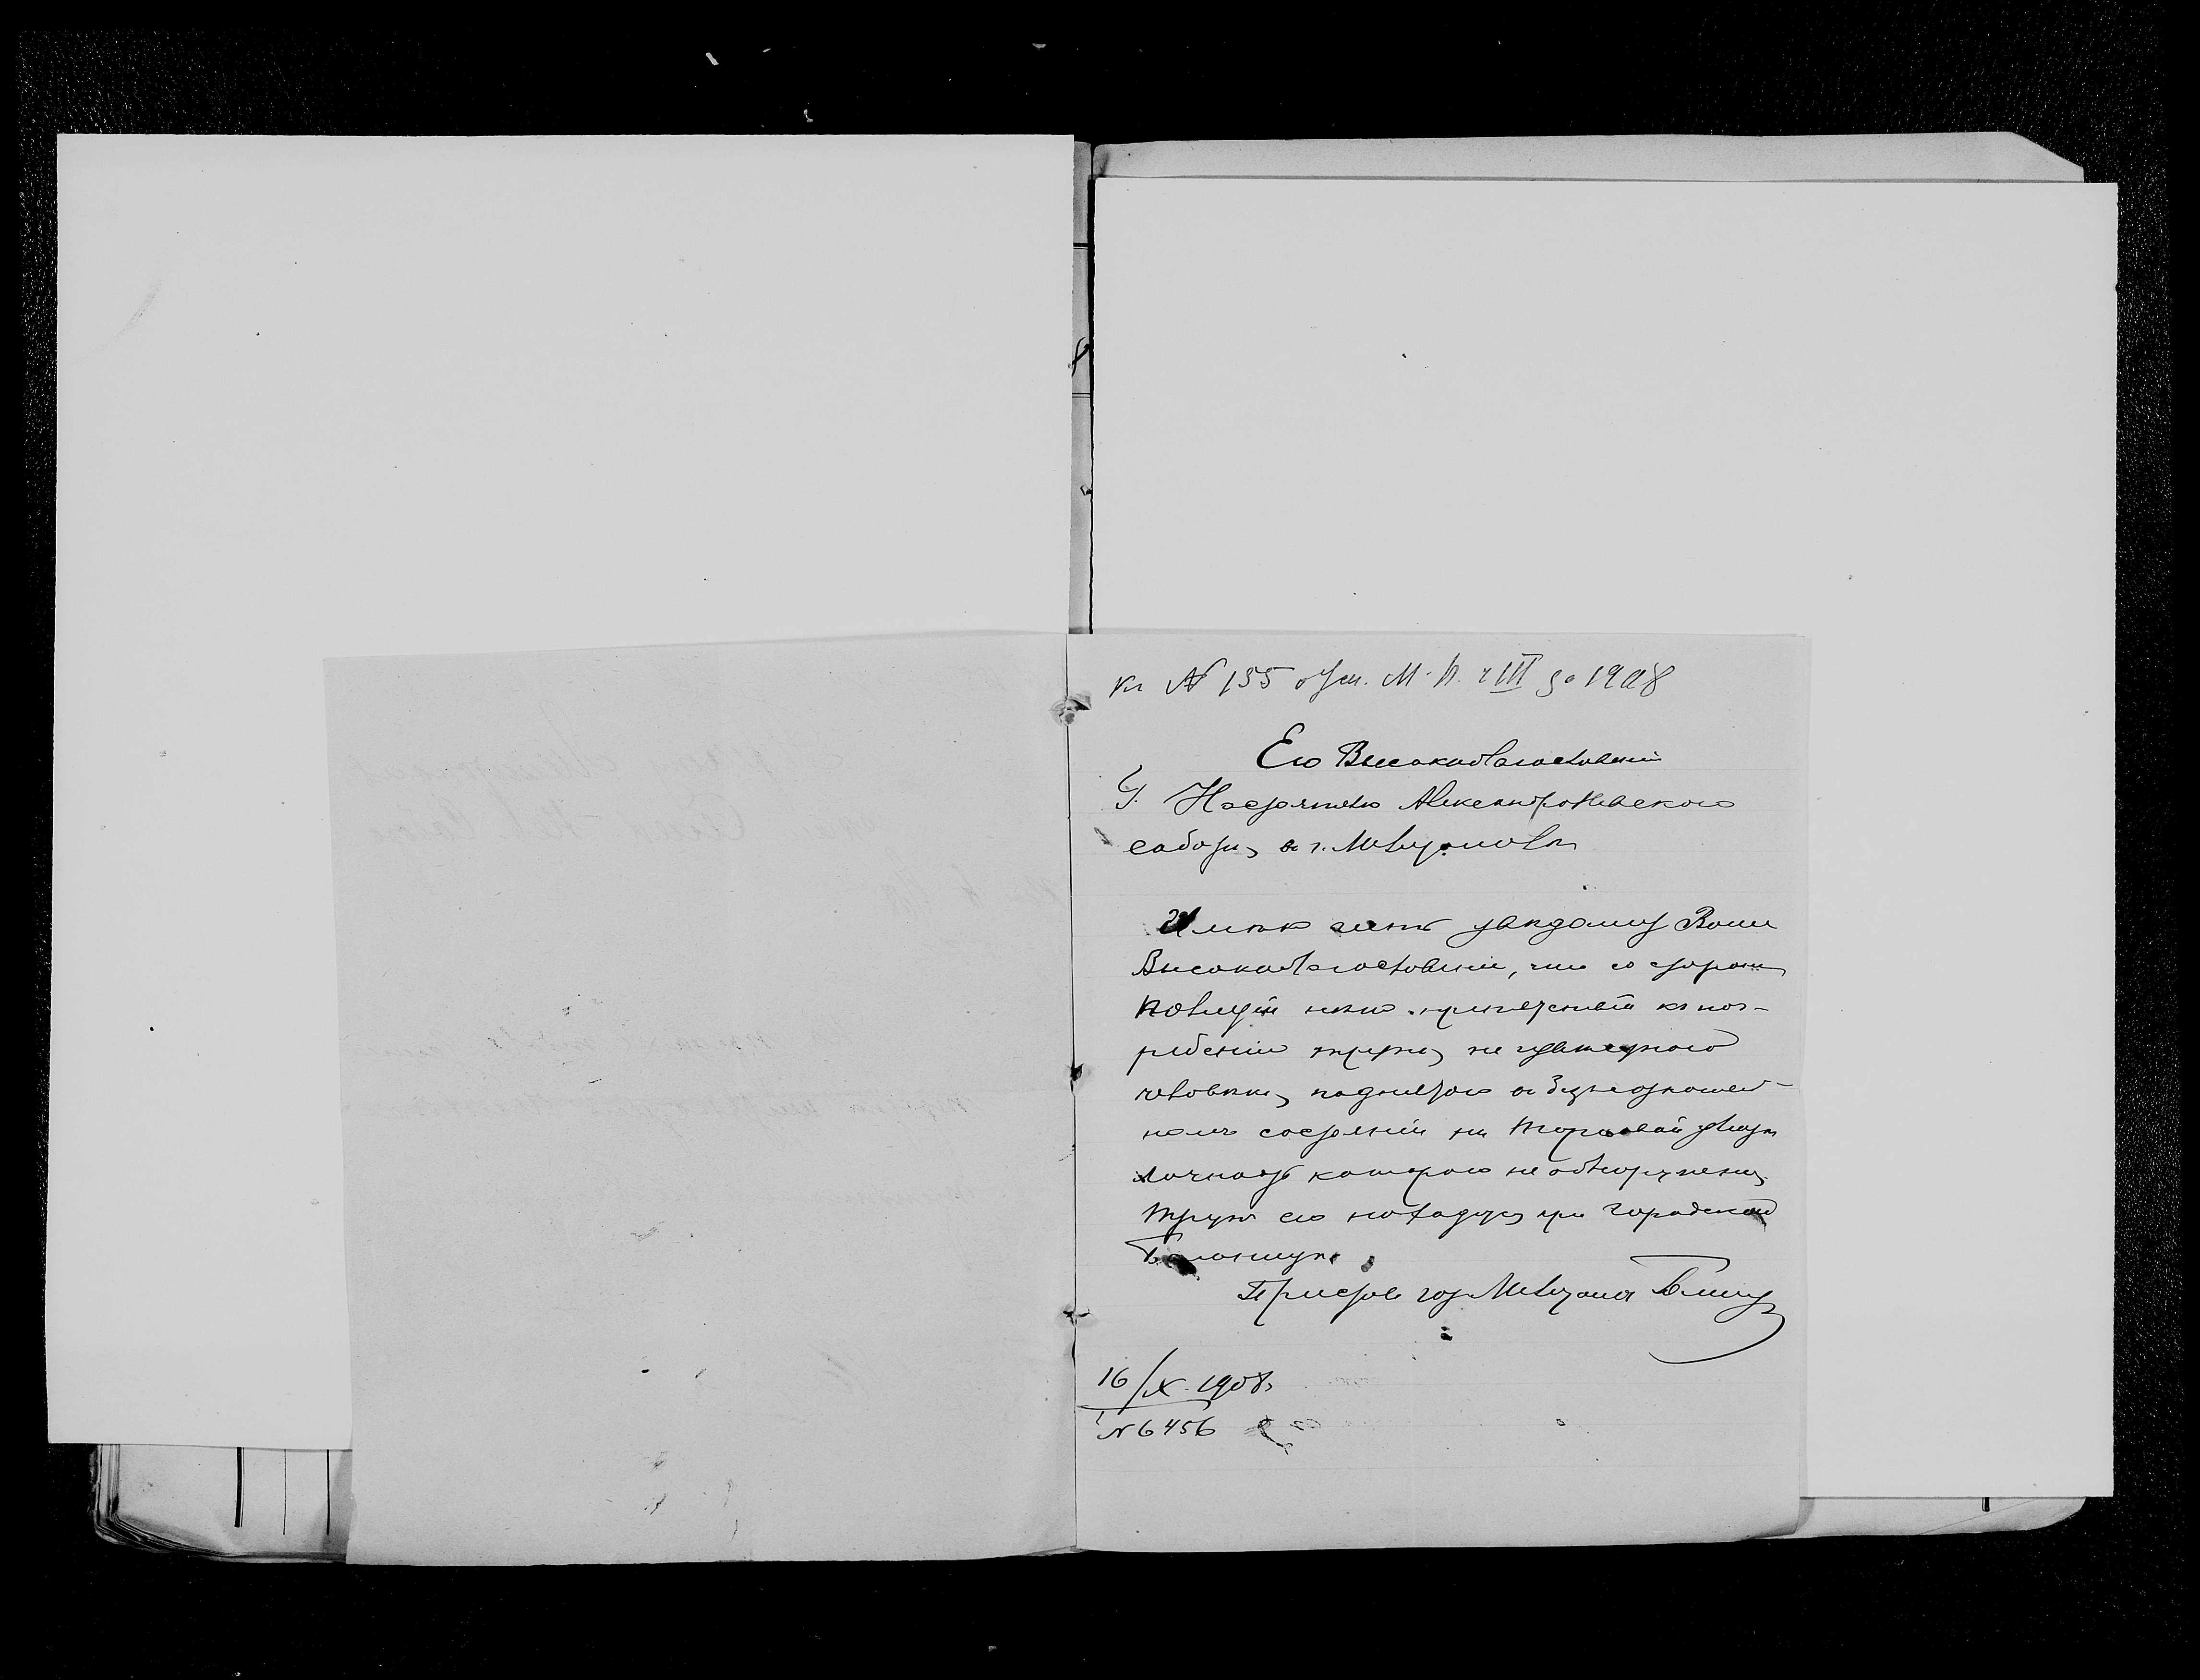 къ № 155 о ум. м. п. ч III за 1908
Его Высокоблагословенiю
Г. Настоятелю Александро Невскаго
собора, въ г. Мелитополѣ
Имѣю честь увѣдомить Ваше
Высокоблагословенiе, что со стороны
полицiи нѣтъ препятствiй къ пог-
ребенiю трупа, не извѣстнаго
человѣка, поднятаго въ безчувствен-
номъ состоянiи на Торговой улицѣ
личность котораго не обнаружена,
трупъ его находится при городской
Больницѣ.
Приставъ гор. Мелитополя
16/X. 1908 г.
№ 6456